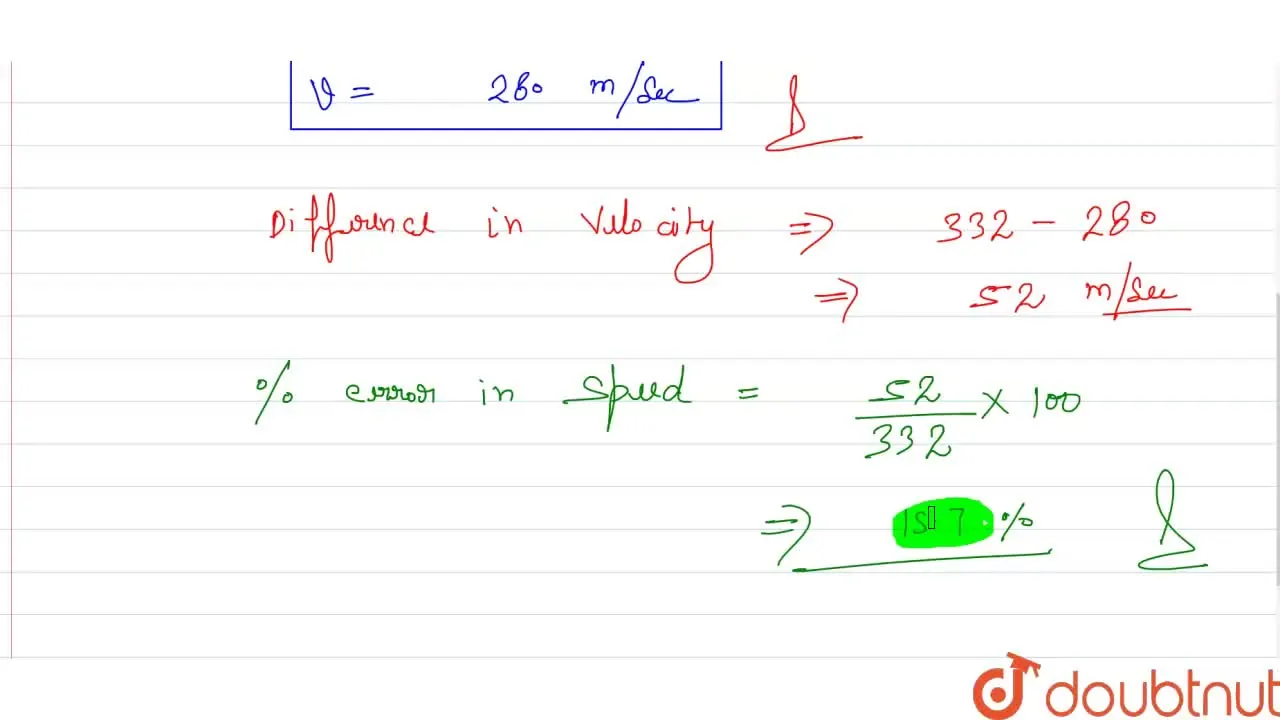 v = 280 m/Sec
Difference in Velocity ⇒ 332 - 280
⇒ 52 m/Sec
% error in Speed = 52/332 × 100
⇒ 15.7 %
doubtnut